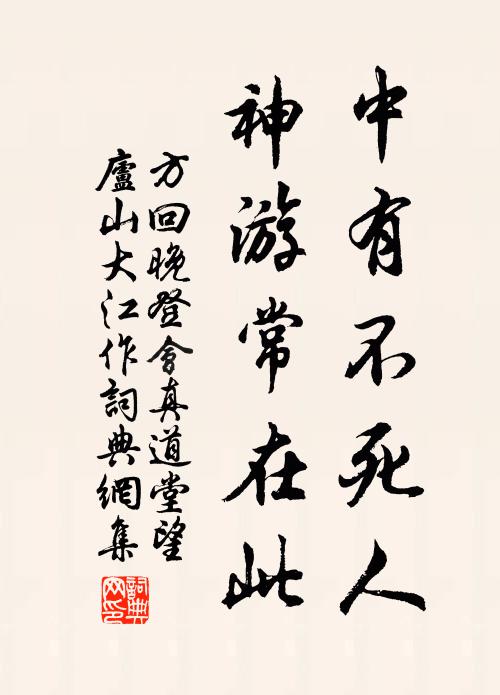 中有不死人
神游常在此
方回晚登會真道堂望
廬山大江作詞典網集
詞典網印